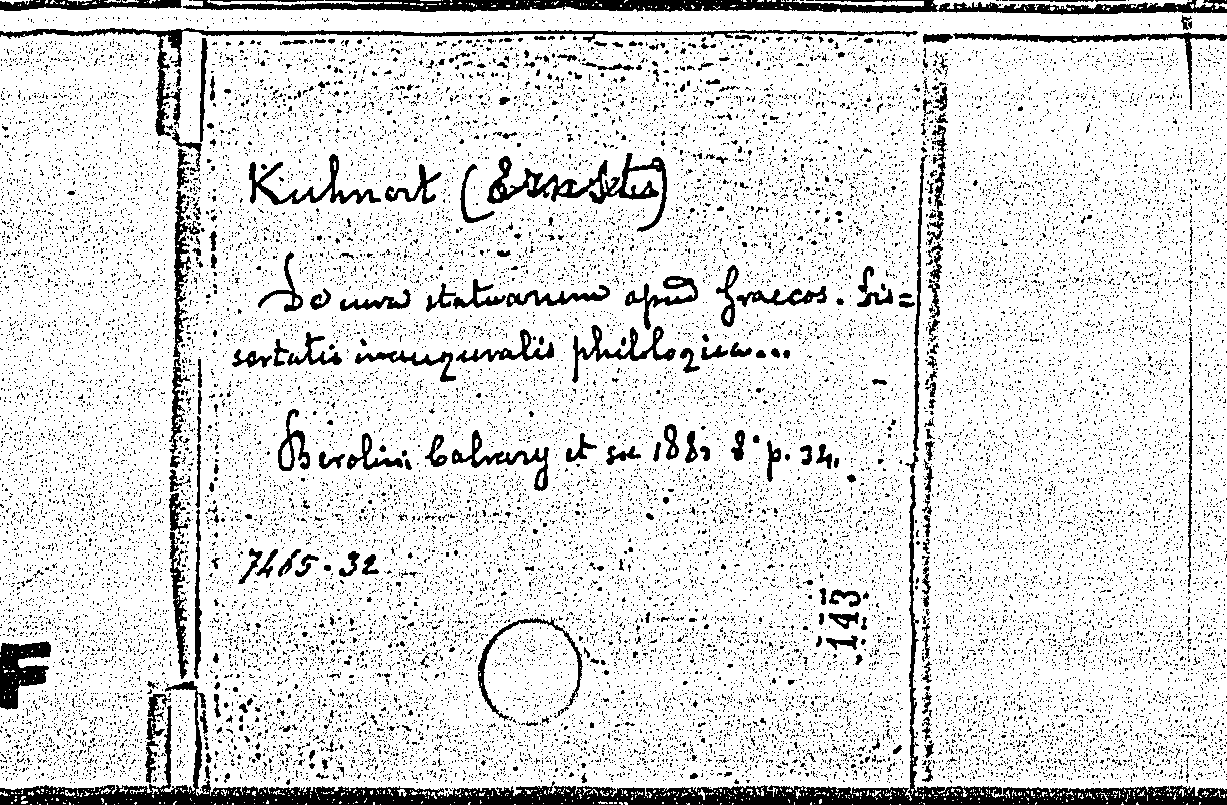 Kuhnert (Ernestus)
De cura statuarum apud Graecos. Dis=
sertatio inauguralis philologica...
Berolini Calvary et soc 1883 8° p. 34.
7465.32
143